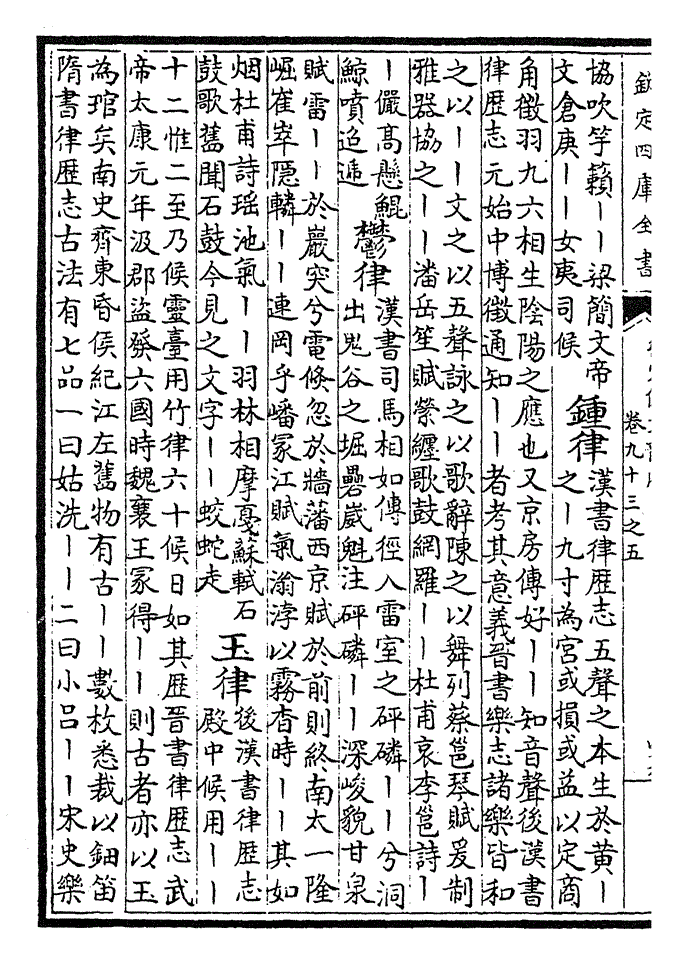 欽定四庫全書
卷九十三之五
協吹竽籟丨丨梁簡文帝
文倉庚丨丨女夷司候
鍾律
漢書律歴志五聲之本生於黄丨
之丨九寸為宮或損或益以定商
角徵羽九六相生陰陽之應也又京房傳好丨丨知音聲後漢書
律歴志元始中博徵通知丨丨者考其意義晉書樂志諸樂皆和
之以丨丨文之以五聲詠之以歌辭陳之以舞列蔡邕琴賦爰制
雅器協之丨丨潘岳笙賦縈纏歌鼓網羅丨丨杜甫哀李邕詩丨
丨儼高懸鯤
鯨噴迢遞
鬱律
漢書司馬相如傳徑入雷室之砰磷丨丨兮洞
出鬼谷之堀礨崴魁注砰磷丨丨深峻貌甘泉
賦雷丨丨於巖突兮電倏忽於牆藩西京賦於前則終南太一隆
崛崔崒隱轔丨丨連岡乎嶓冢江賦氣滃渤以霧杳時丨丨其如
烟杜甫詩瑶池氣丨丨羽林相摩戛蘇軾石
鼓歌舊聞石鼓今見之文字丨丨蛟蛇走
玉律
後漢書律歴志
殿中候用丨丨
十二惟二至乃候靈臺用竹律六十候日如其歴晉書律歴志武
帝太康元年汲郡盜發六國時魏襄王冢得丨丨則古者亦以玉
為琯矣南史齊東昏侯紀江左舊物有古丨丨數枚悉裁以鈿笛
隋書律歴志古法有七品一曰姑洗丨丨二曰小吕丨丨宋史樂